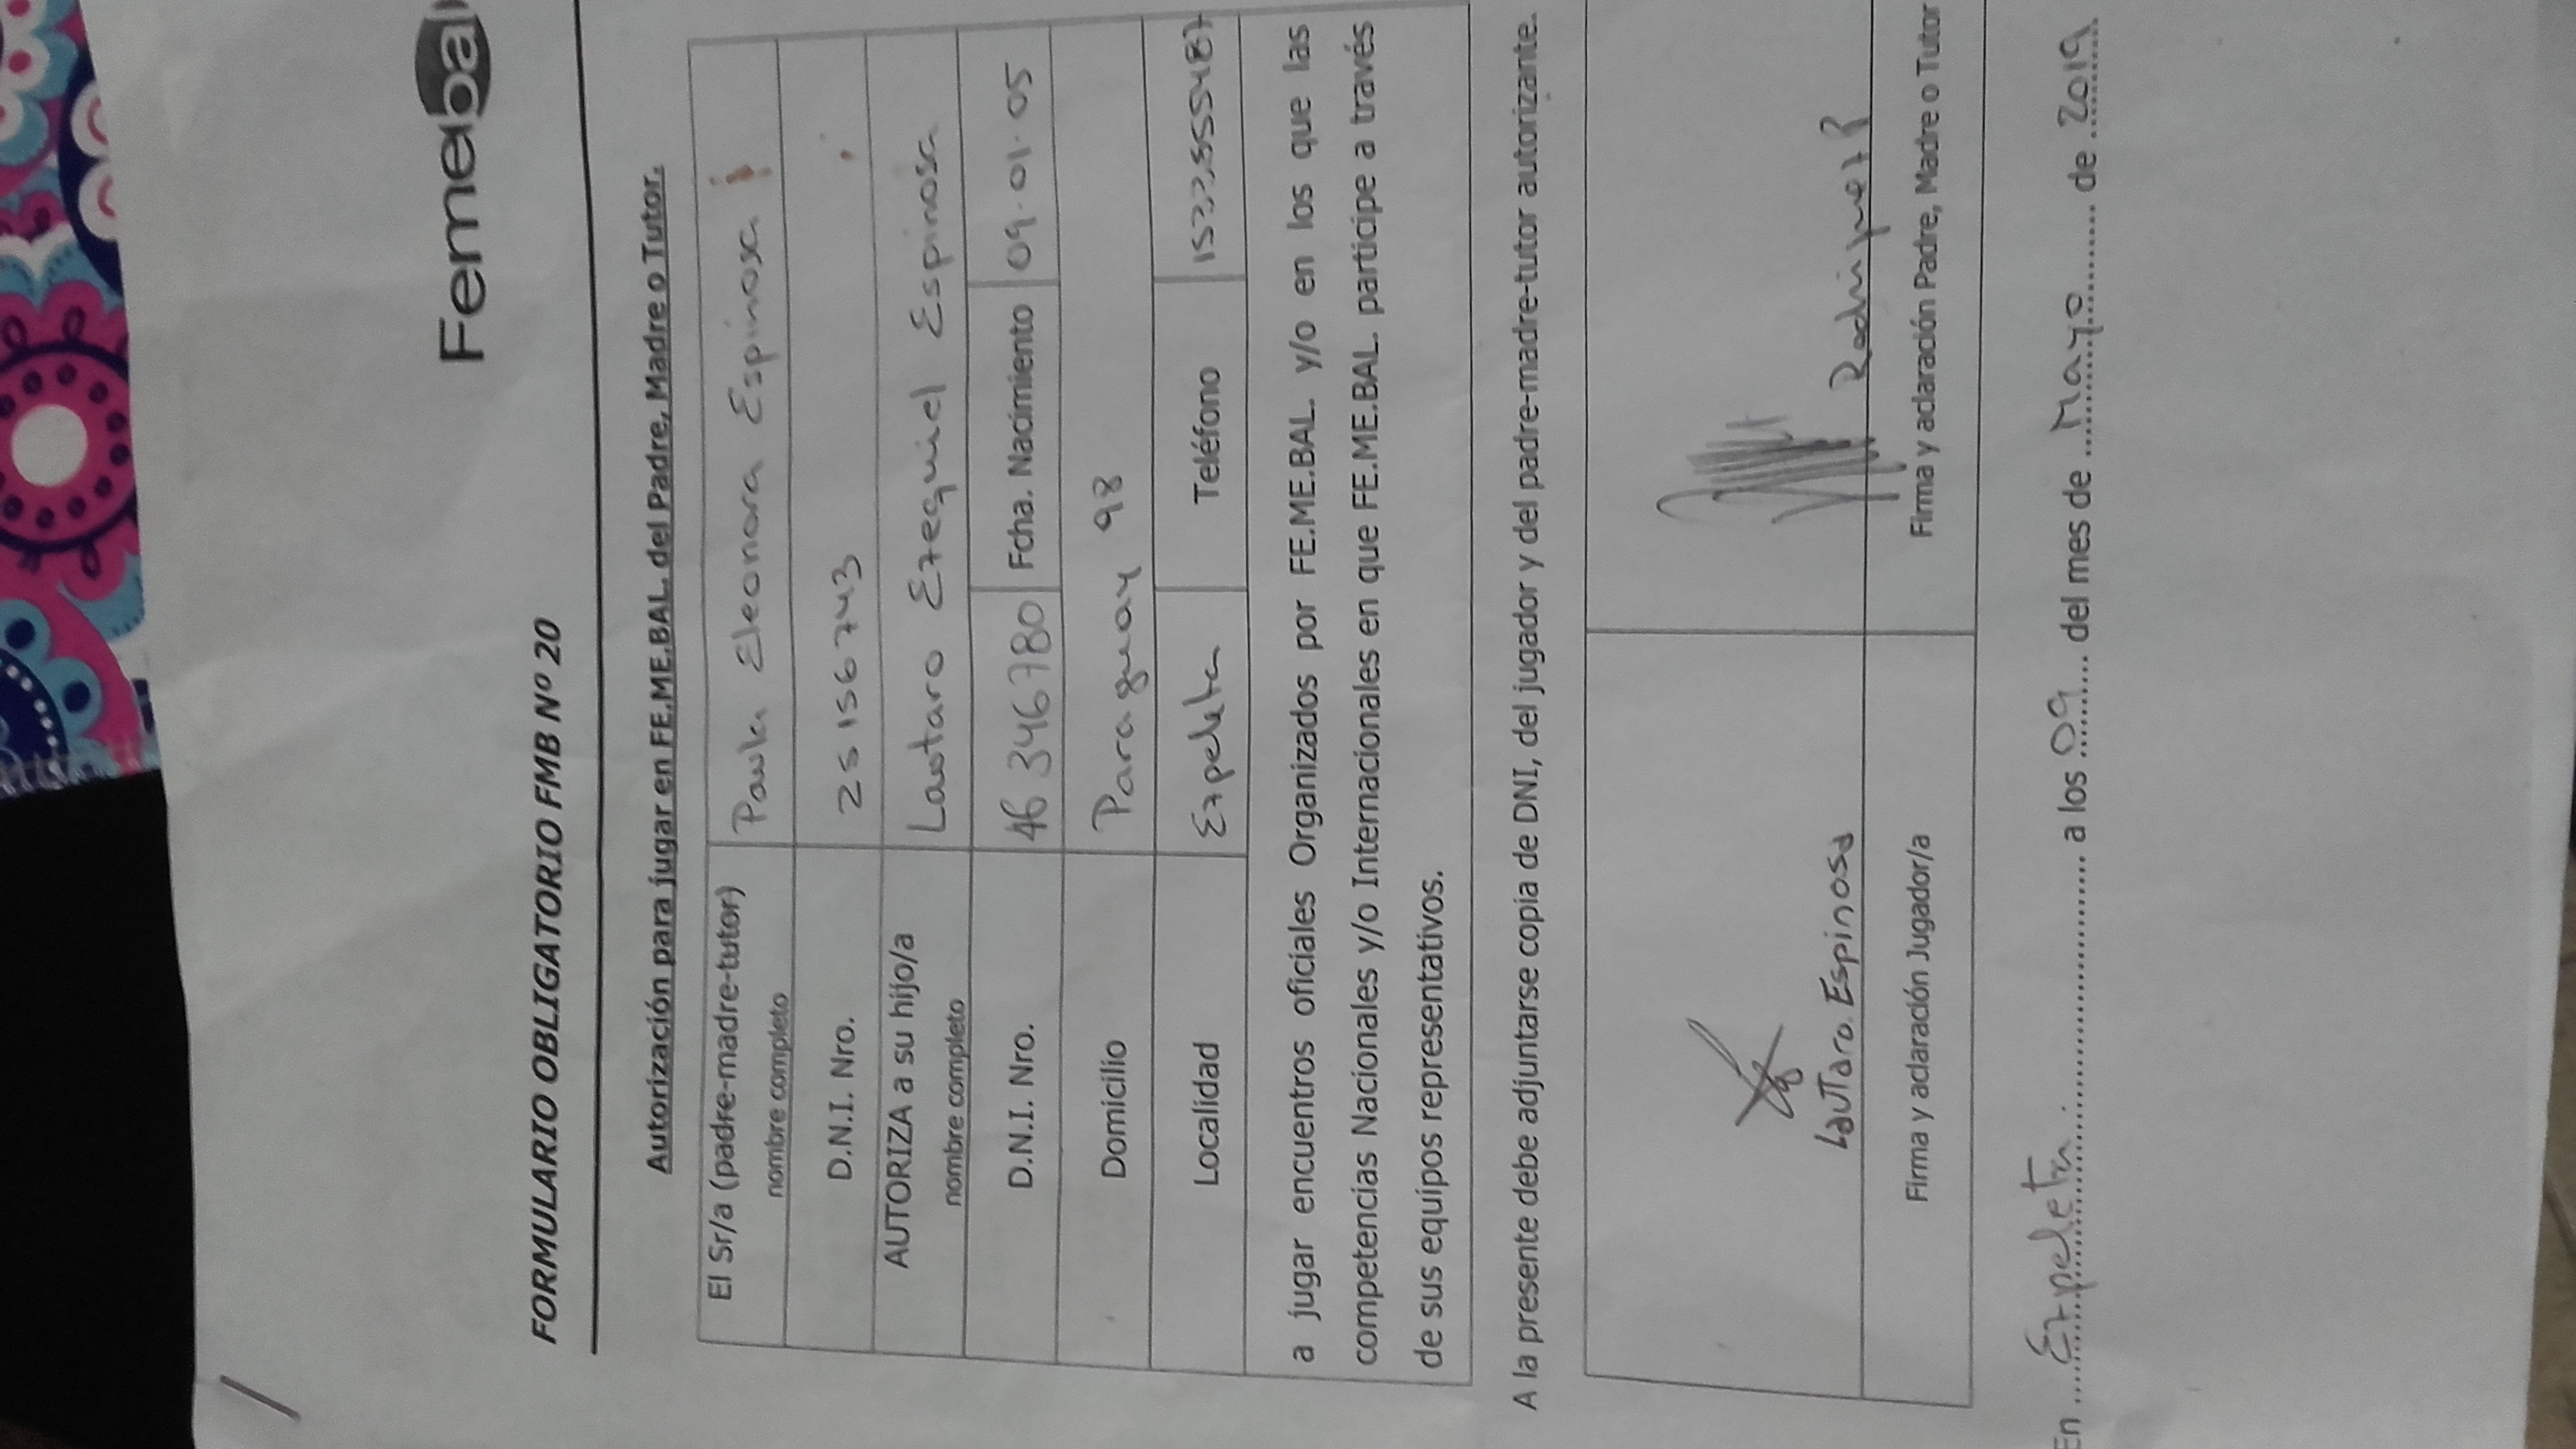 Femebal
FORMULARIO OBLIGATORIO FMB Nº 20
Autorización para jugar en FE.ME.BAL. del Padre, Madre o Tutor.
El Sr/a (padre-madre-tutor) nombre completo Paula Eleonora Espinosa
D.N.I. Nro. 25156743
AUTORIZA a su hijo/a nombre completo Lautaro Ezequiel Espinosa
D.N.I. Nro. 46 346780 Fcha. Nacimiento 09.01.05
Domicilio Paraguay 98
Localidad Ezpeleta Teléfono
a jugar encuentros oficiales Organizados por FE.ME.BAL. y/o en los que las
competencias Nacionales y/o Internacionales en que FE.ME.BAL. participe a través
de sus equipos representativos.
A la presente debe adjuntarse copia de DNI, del jugador y del padre-madre-tutor autorizante.
Lautaro Espinosa
Firma y aclaración Jugador/a Firma y aclaración Padre, Madre o Tutor
En Ezpeleta a los 09 del mes de Mayo de 2019